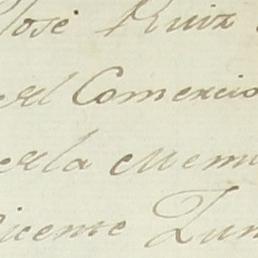 José Ruiz
del Comercio
de la Mem
Vicente Zun